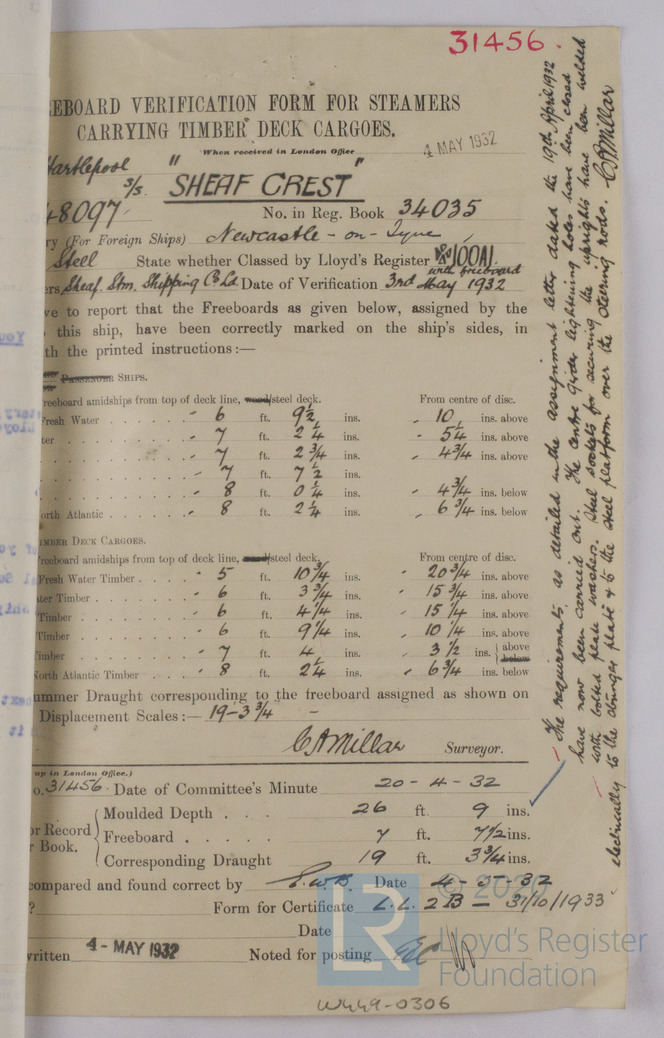 31456.
EEBOARD VERIFICATION FORM FOR STEAMERS
CARRYING TIMBER DECK CARGOES.
When received in London Office
4 MAY 1932
Hartlepool
S/S. "SHEAF CREST"
48097 No. in Reg. Book 34035
ry (For Foreign Ships) Newcastle-on-Tyne
Steel State whether Classed by Lloyd's Register 100A1.
with freeboard
ers Sheaf Stm. Shipping Co Ld Date of Verification 3rd May 1932
ve to report that the Freeboards as given below, assigned by the
this ship, have been correctly marked on the ship's sides, in
th the printed instructions:—
PASSENGER SHIPS.
reeboard amidships from top of deck line, wood/steel deck. From centre of disc.
Fresh Water 6 ft. 9½ ins. 10 ins. above
ter 7 ft. 2¼ ins. 5¼ ins. above
7 ft. 2¾ ins. 4¾ ins. above
7 ft. 7½ ins.
8 ft. 0¼ ins. 4¾ ins. below
orth Atlantic 8 ft. 2¼ ins. 6¾ ins. below
IMBER DECK CARGOES.
reeboard amidships from top of deck line, wood/steel deck. From centre of disc.
Fresh Water Timber 5 ft. 10¾ ins. 20¾ ins. above
ter Timber 6 ft. 3¾ ins. 15¾ ins. above
Timber 6 ft. 4¼ ins. 15¼ ins. above
Timber 6 ft. 9¼ ins. 10¼ ins. above
imber 7 ft. 4 ins. 3½ ins. above below
North Atlantic Timber 8 ft. 2¼ ins. 6¾ ins. below
ummer Draught corresponding to the freeboard assigned as shown on
Displacement Scales:— 19-3¾ –
C A Millar Surveyor.
up in London Office.)
o. 31456. Date of Committee's Minute 20-4-32
Moulded Depth 26 ft. 9 ins.
or Record Freeboard 7 ft. 7½ ins.
r Book. Corresponding Draught 19 ft. 3¾ ins.
compared and found correct by Date 4-5-32
? Form for Certificate L.L. 2B — 31/10/1933
Date
written 4-MAY 1932 Noted for posting
The requirements, as detailed in the assignment letter dated the 19th April 1932
have now been carried out. The centre girder lightening holes have been closed
with bolted plate washers. Steel sockets for securing the uprights have been welded
electrically to the stringer plate & to the steel platform over the steering rods. C A Millar
LR © 2020
Lloyd's Register
Foundation
W449-0306